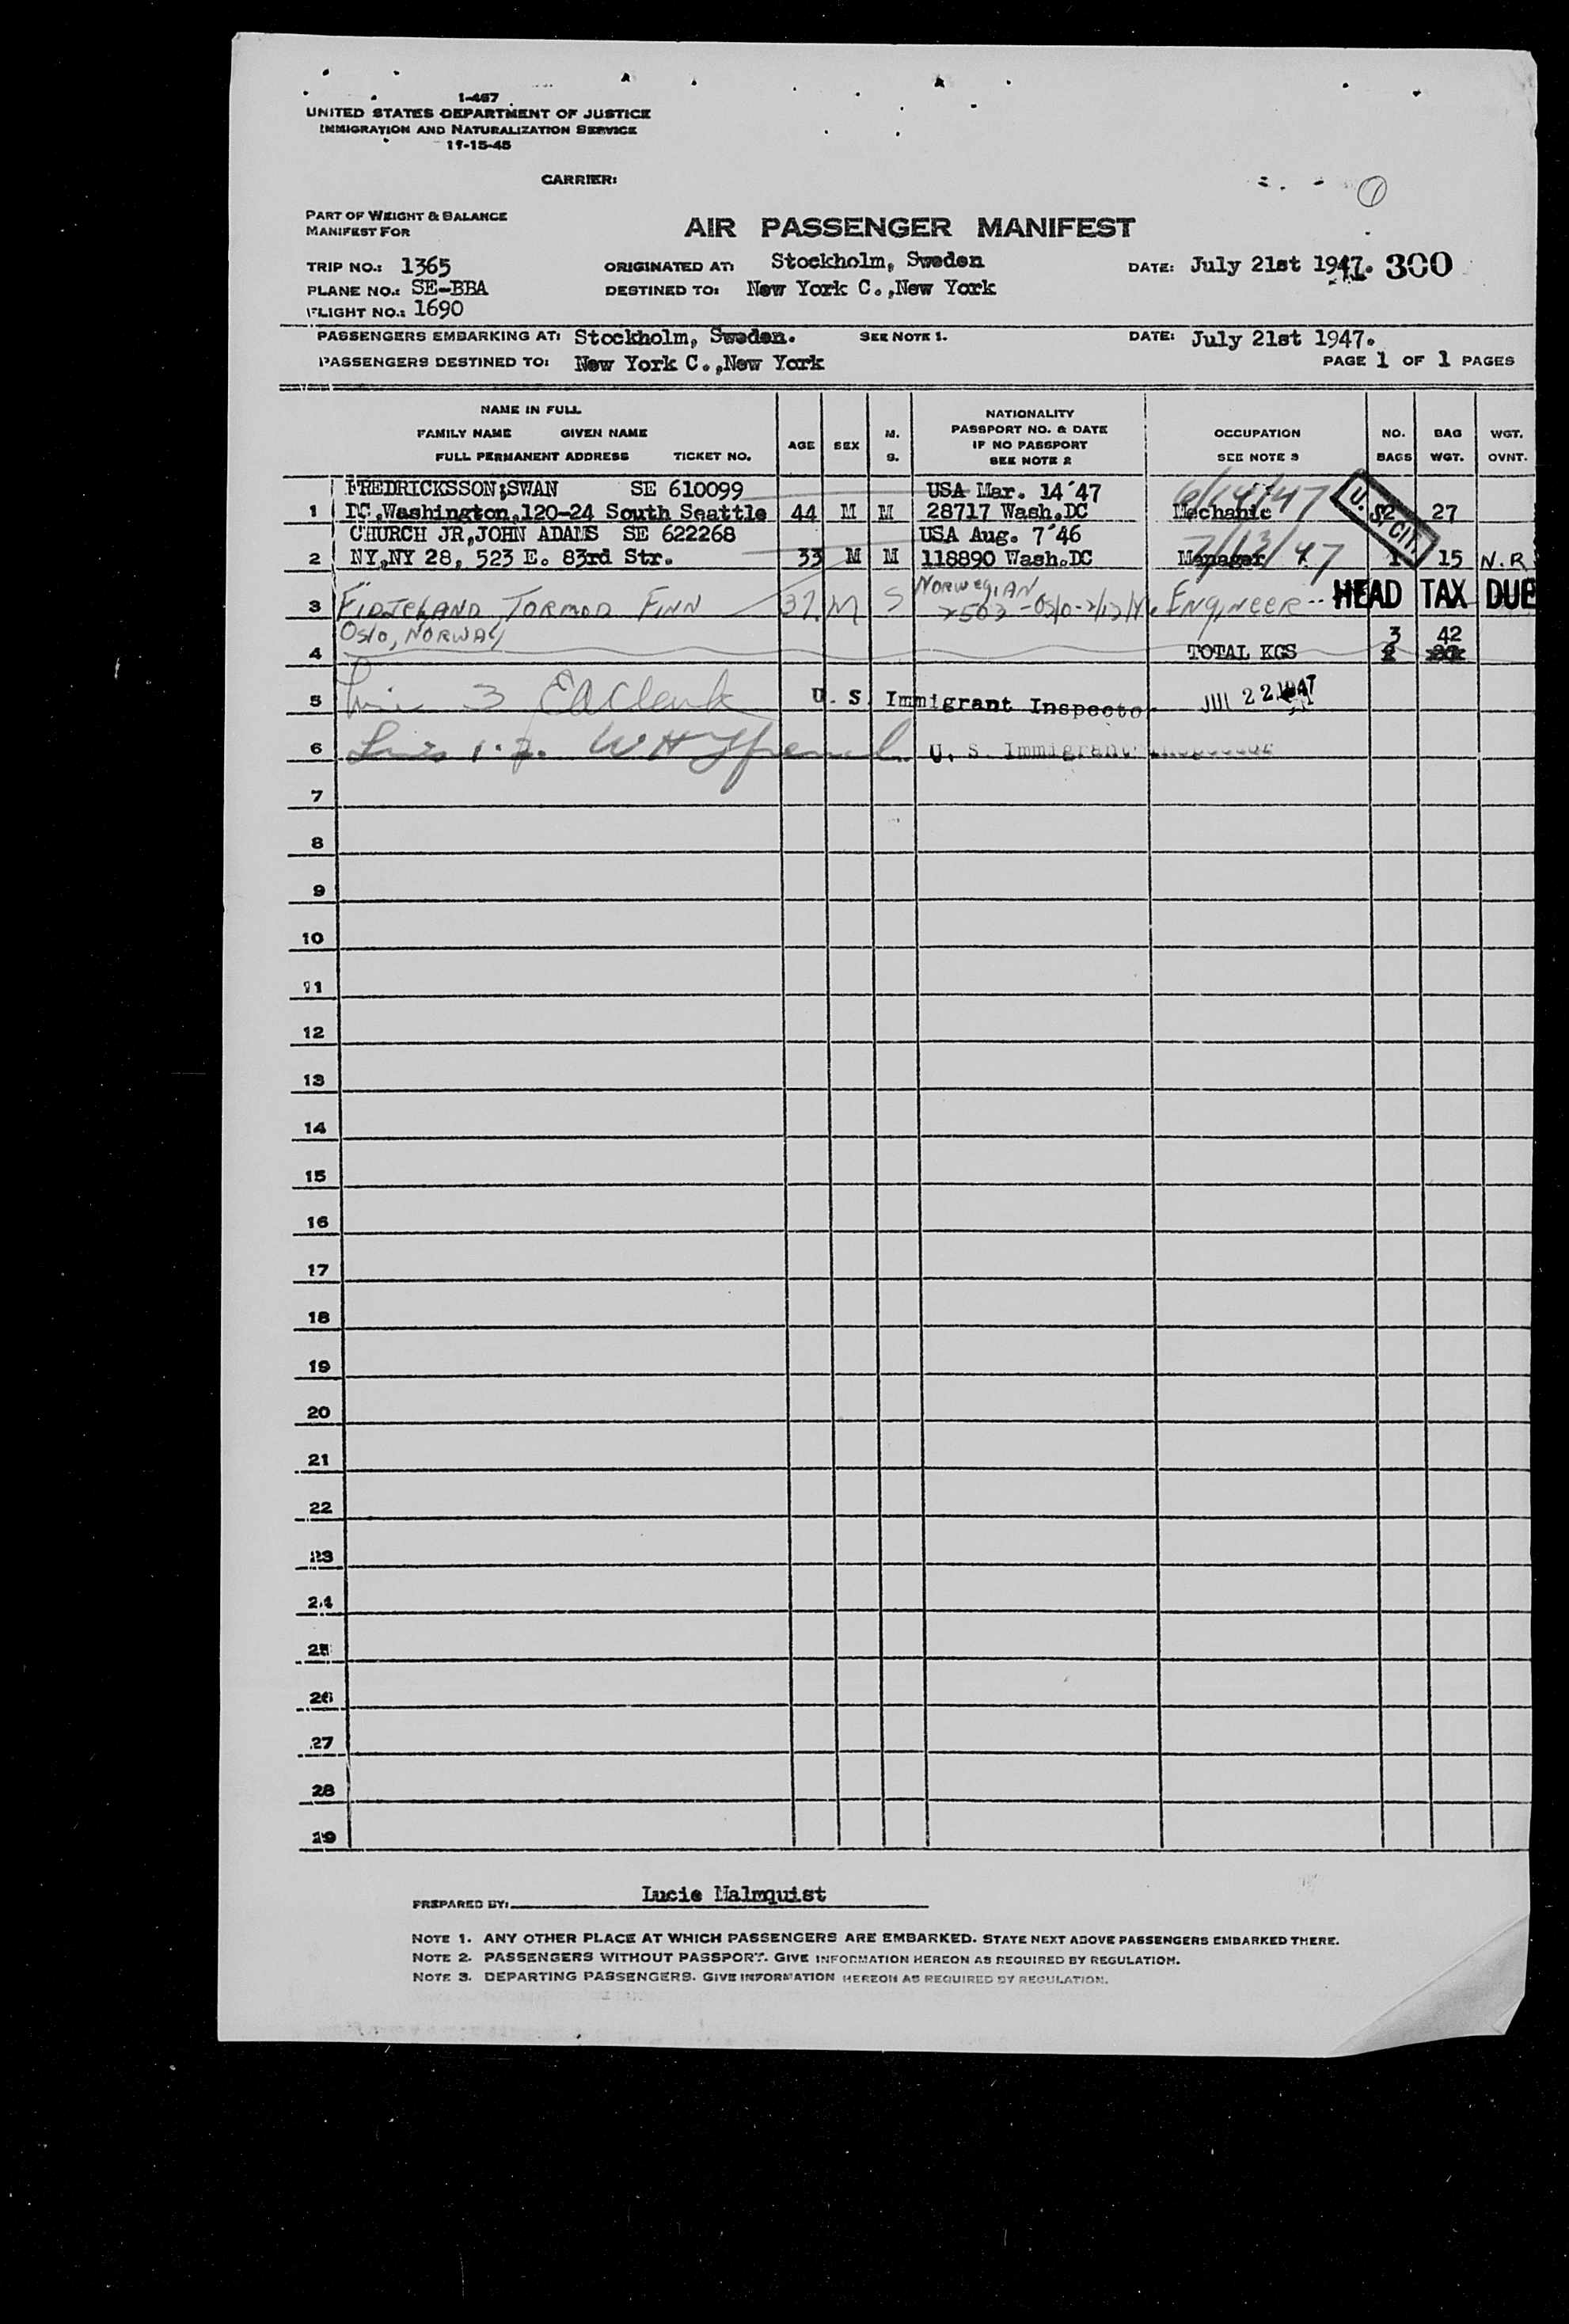 1-467
UNITED STATES DEPARTMENT OF JUSTICE
IMMIGRATION AND NATURALIZATION SERVICE
11-15-45
CARRIER:
1
PART OF WEIGHT & BALANCE
MANIFEST FOR
AIR PASSENGER MANIFEST
TRIP NO.: 1365 ORIGINATED AT: Stockholm, Sweden DATE: July 21st 1947. 300
PLANE NO.: SE-BBA DESTINED TO: New York C.,New York
FLIGHT NO.: 1690
PASSENGERS EMBARKING AT: Stockholm, Sweden. SEE NOTE 1. DATE: July 21st 1947.
PASSENGERS DESTINED TO: New York C.,New York PAGE 1 OF 1 PAGES
NAME IN FULL
FAMILY NAME GIVEN NAME
FULL PERMANENT ADDRESS TICKET NO.
AGE
SEX
M.
S.
NATIONALITY
PASSPORT NO. & DATE
IF NO PASSPORT
SEE NOTE 2
OCCUPATION
SEE NOTE 3
NO.
BAGS
BAG
WGT.
WGT.
OVNT.
FREDRICKSSON,SWAN SE 610099 USA Mar. 14'47 6/14/47 U. S. CIT.
1 DC,Washington,120-24 South Seattle 44 M M 28717 Wash.DC Mechanic 2 27
CHURCH JR,JOHN ADAMS SE 622268 USA Aug. 7'46 7/13/47
2 NY,NY 28, 523 E. 83rd Str. 33 M M 118890 Wash.DC Manager 1 15 N.R
3 TORMOD FINN 37 M S NORWEGIAN ENGINEER HEAD TAX DUE
OSLO, NORWAY 3 42
4 TOTAL KGS
5 Line 3 EA Clark U. S. Immigrant Inspector JUL 22 1947
6 U. S. Immigrant Inspector
7
8
9
10
11
12
13
14
15
16
17
18
19
20
21
22
23
24
25
26
27
28
29
PREPARED BY: Lucie Malmquist
NOTE 1. ANY OTHER PLACE AT WHICH PASSENGERS ARE EMBARKED. STATE NEXT ABOVE PASSENGERS EMBARKED THERE.
NOTE 2. PASSENGERS WITHOUT PASSPORT. GIVE INFORMATION HEREON AS REQUIRED BY REGULATION.
NOTE 3. DEPARTING PASSENGERS. GIVE INFORMATION HEREON AS REQUIRED BY REGULATION.